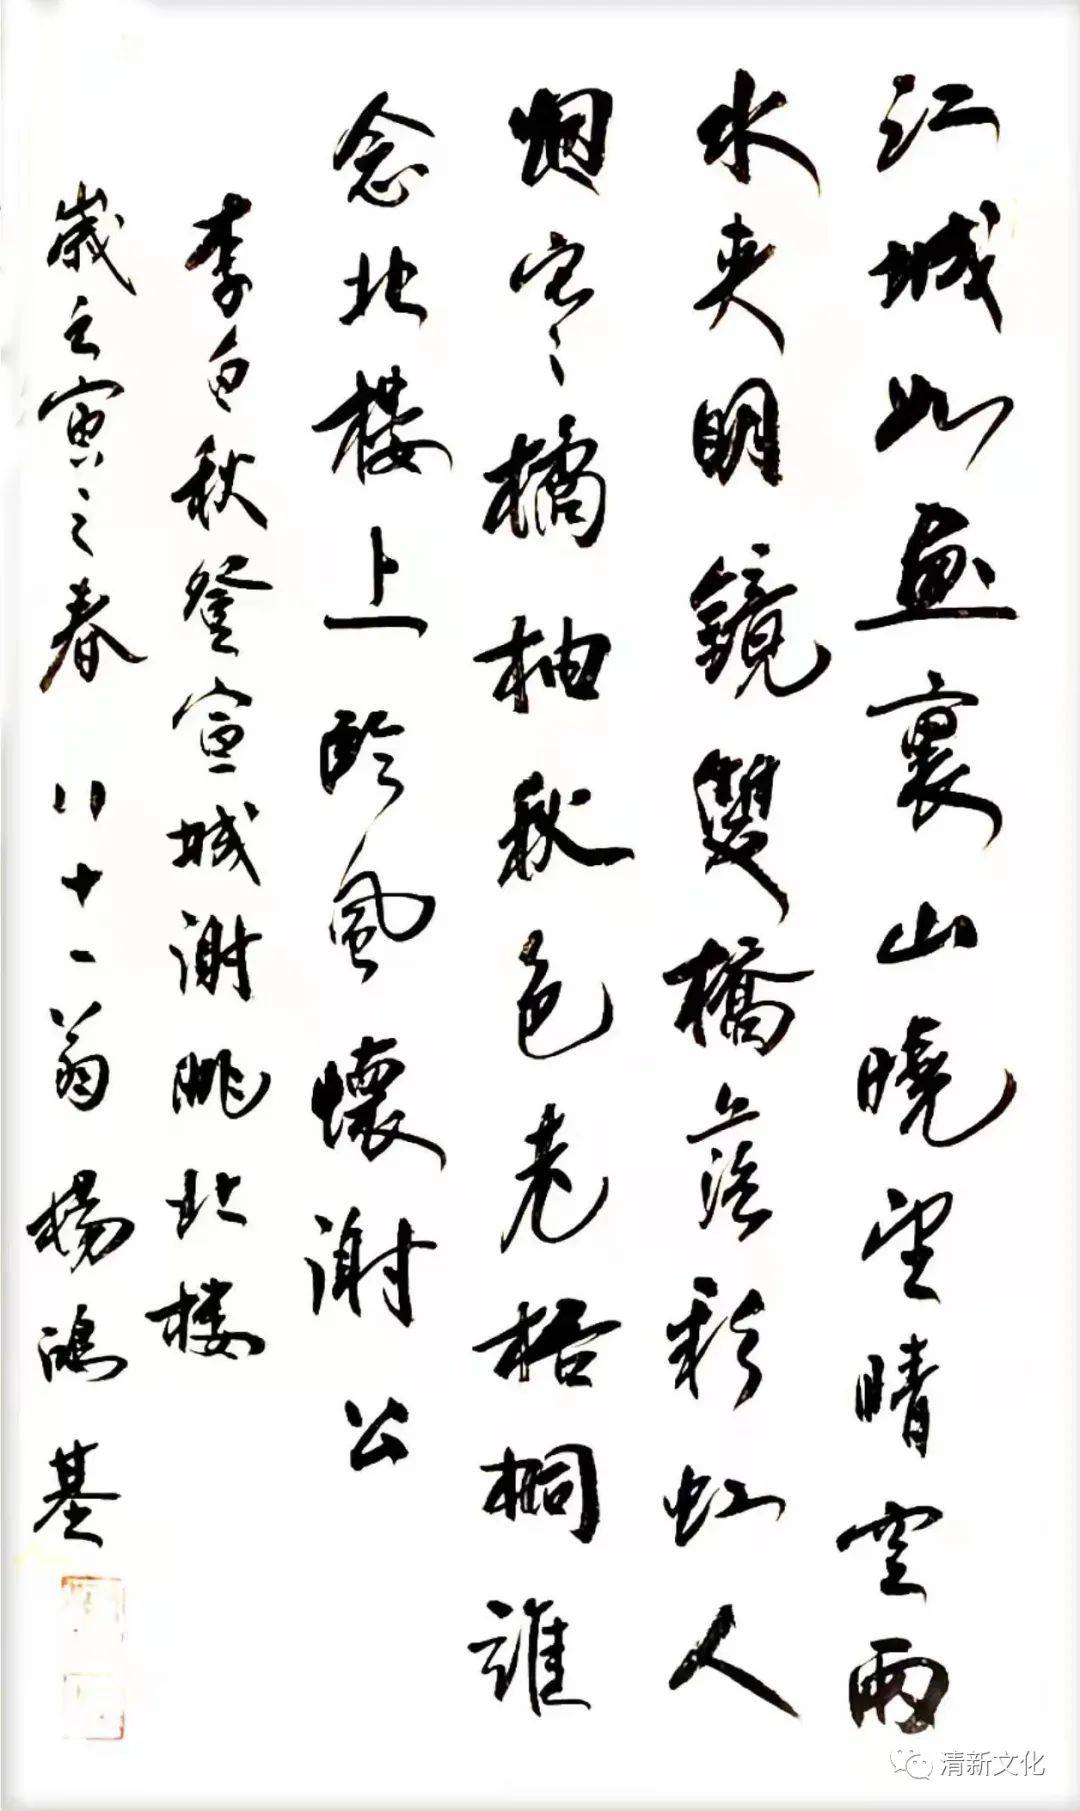 江城如畫裏山曉望晴空兩
水夾明鏡雙橋落彩虹人
烟寒橘柚秋色老梧桐誰
念北樓上臨風懷謝公
李白秋登宣城謝朓北樓
歲壬寅之春 八十一翁楊鴻基
清新文化